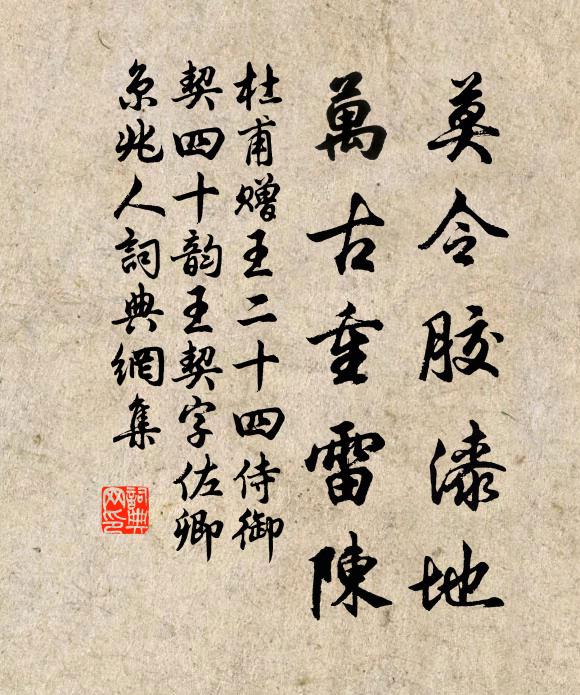 莫令胶漆地
萬古重雷陳
杜甫贈王二十四侍御
契四十韵王契字佐卿
京兆人詞典網集
詞典
网印